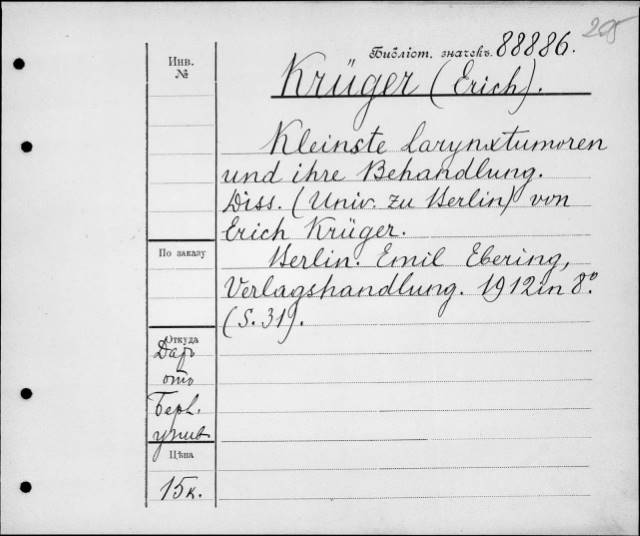 205
Библіот. значекъ. 88886.
Инв.
№
Krüger (Erich).
Kleinste Larynxtumoren
und ihre Behandlung.
Diss. (Univ. zu Berlin) von
Erich Krüger.
Berlin. Emil Ebering,
Verlagshandlung. 1912 in 8º.
(S. 31).
По заказу
Откуда
Даръ
отъ
Берл.
унив.
Цѣна
15к.